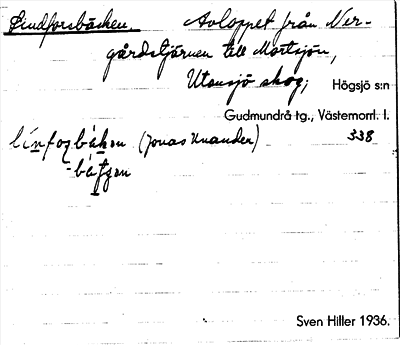 Lindforsbäcken. Avloppet från Ner-
gårdstjärnen till Mortsjön,
Utansjö skog, Högsjö s:n
Gudmundrå tg., Västernorrl. l.
línfoʂbäkən (Jonas Unander) 338
-bätʃən
Sven Hiller 1936.